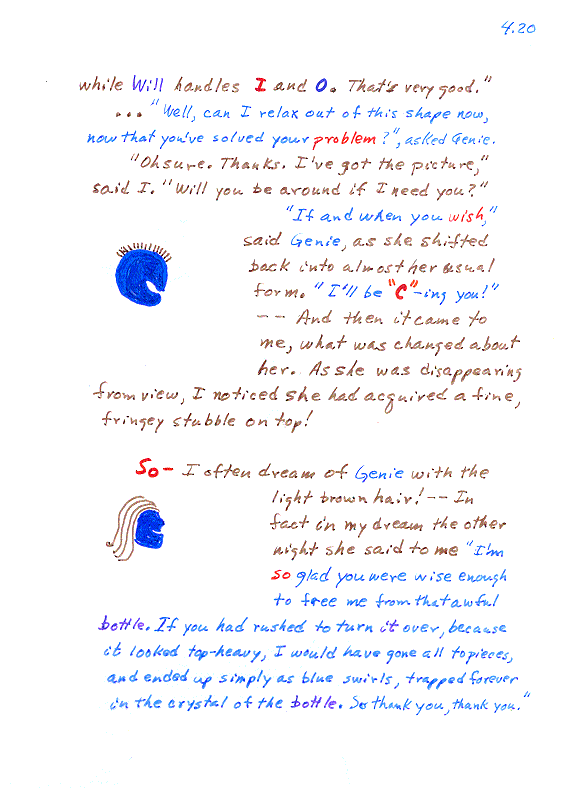 4.20
while Will handles I and O. That's very good."
... "Well, can I relax out of this shape now,
now that you've solved your problem?", asked Genie.
"Oh sure. Thanks. I've got the picture,"
said I. "Will you be around if I need you?"
"If and when you wish,"
said Genie, as she shifted
back into almost her usual
form. "I'll be "C"-ing you!"
-- And then it came to
me, what was changed about
her. As she was disappearing
from view, I noticed she had acquired a fine,
fringey stubble on top!
So- I often dream of Genie with the
light brown hair! -- In
fact in my dream the other
night she said to me "I'm
so glad you were wise enough
to free me from that awful
bottle. If you had rushed to turn it over, because
it looked top-heavy, I would have gone all to pieces,
and ended up simply as blue swirls, trapped forever
in the crystal of the bottle. So thank you, thank you."